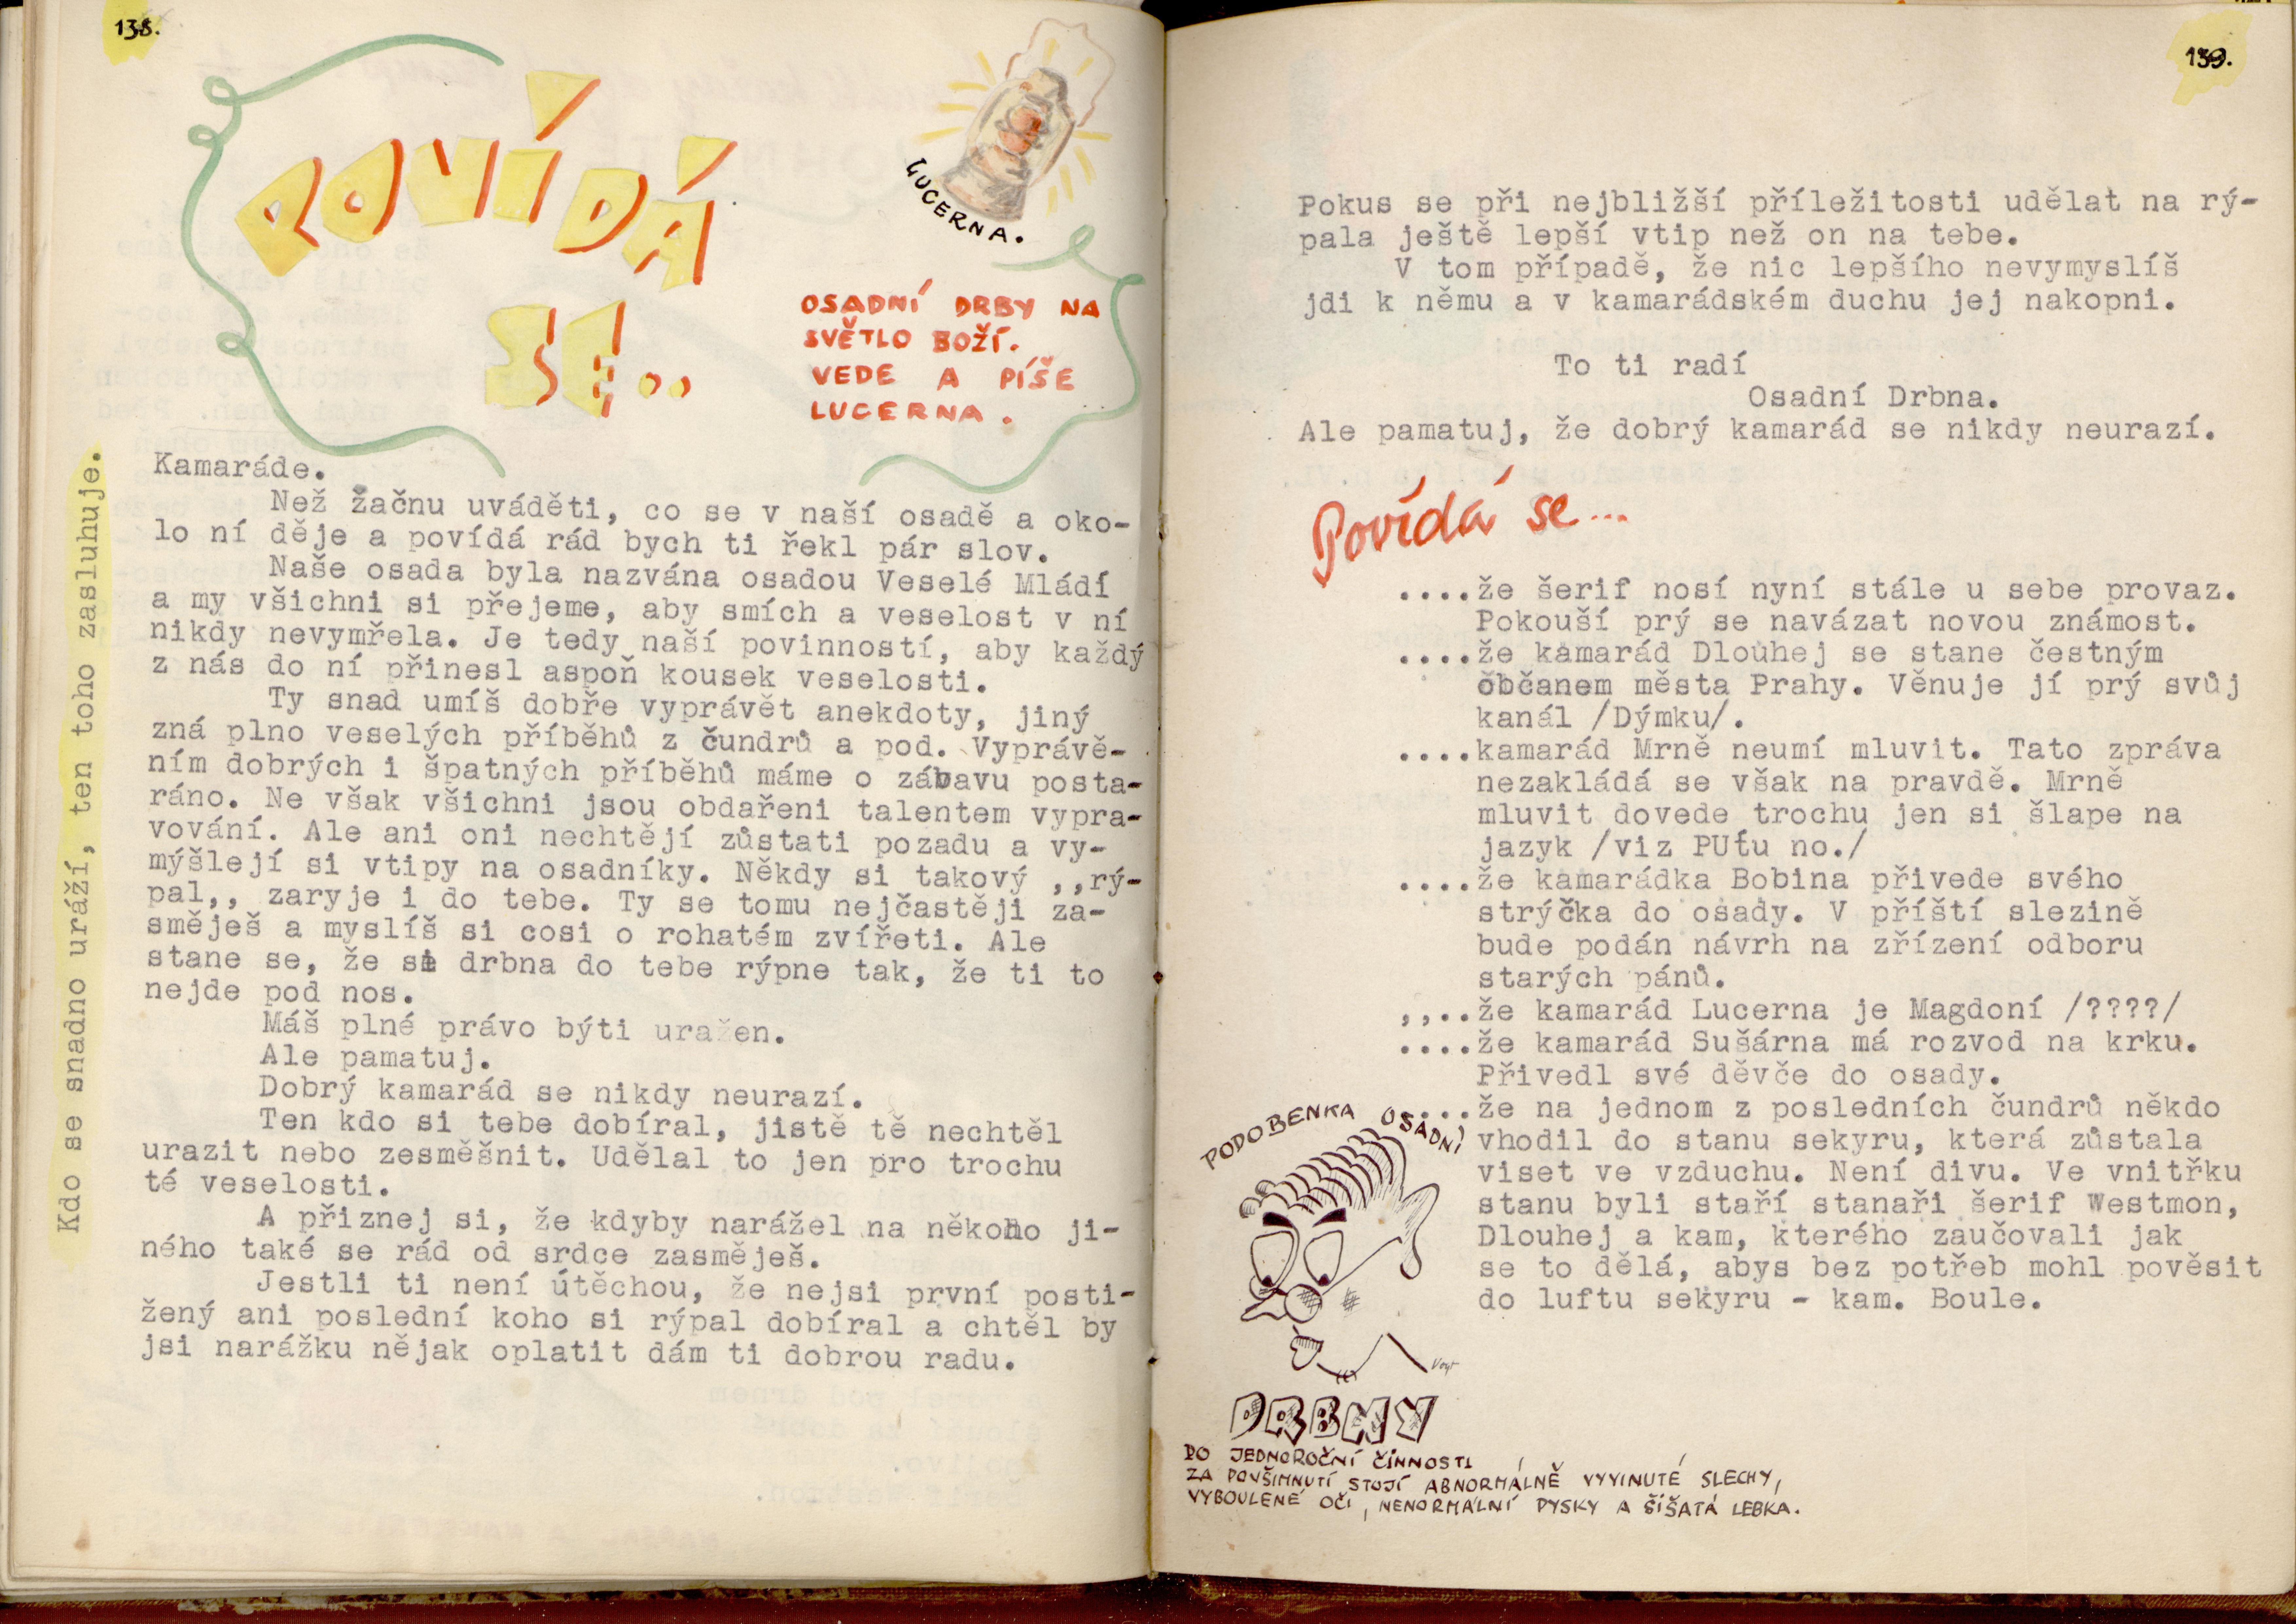 138.
POVÍDÁ
SE..
LUCERNA.
OSADNÍ DRBY NA
SVĚTLO BOŽÍ.
VEDE A PÍŠE
LUCERNA.
Kdo se snadno uráží, ten toho zasluhuje.
Kamaráde.
Než žačnu uváděti, co se v naší osadě a oko-
lo ní děje a povídá rád bych ti řekl pár slov.
Naše osada byla nazvána osadou Veselé Mládí
a my všichni si přejeme, aby smích a veselost v ní
nikdy nevymřela. Je tedy naší povinností, aby každý
z nás do ní přinesl aspoň kousek veselosti.
Ty snad umíš dobře vyprávět anekdoty, jiný
zná plno veselých příběhů z čundrů a pod. Vyprávě-
ním dobrých i špatných příběhů máme o zábavu posta-
ráno. Ne však všichni jsou obdařeni talentem vypra-
vování. Ale ani oni nechtějí zůstati pozadu a vy-
mýšlejí si vtipy na osadníky. Někdy si takový ,,rý-
pal,, zaryje i do tebe. Ty se tomu nejčastěji za-
směješ a myslíš si cosi o rohatém zvířeti. Ale
stane se, že si drbna do tebe rýpne tak, že ti to
nejde pod nos.
Máš plné právo býti uražen.
Ale pamatuj.
Dobrý kamarád se nikdy neurazí.
Ten kdo si tebe dobíral, jistě tě nechtěl
urazit nebo zesměšnit. Udělal to jen pro trochu
té veselosti.
A přiznej si, že kdyby narážel na někoho ji-
ného také se rád od srdce zasměješ.
Jestli ti není útěchou, že nejsi první posti-
žený ani poslední koho si rýpal dobíral a chtěl by
jsi narážku nějak oplatit dám ti dobrou radu.
139.
Pokus se při nejbližší příležitosti udělat na rý-
pala ještě lepší vtip než on na tebe.
V tom případě, že nic lepšího nevymyslíš
jdi k němu a v kamarádském duchu jej nakopni.
To ti radí
Osadní Drbna.
Ale pamatuj, že dobrý kamarád se nikdy neurazí.
Povídá se...
....že šerif nosí nyní stále u sebe provaz.
Pokouší prý se navázat novou známost.
....že kamarád Dlouhej se stane čestným
občanem města Prahy. Věnuje jí prý svůj
kanál /Dýmku/.
....kamarád Mrně neumí mluvit. Tato zpráva
nezakládá se však na pravdě. Mrně
mluvit dovede trochu jen si šlape na
jazyk /viz PUťu no./
....že kamarádka Bobina přivede svého
strýčka do osady. V příští slezině
bude podán návrh na zřízení odboru
starých pánů.
,,..že kamarád Lucerna je Magdoní /????/
....že kamarád Sušárna má rozvod na krku.
Přivedl své děvče do osady.
....že na jednom z posledních čundrů někdo
vhodil do stanu sekyru, která zůstala
viset ve vzduchu. Není divu. Ve vnitřku
stanu byli staří stanaři šerif Westmon,
Dlouhej a kam, kterého zaučovali jak
se to dělá, abys bez potřeb mohl pověsit
do luftu sekyru - kam. Boule.
PODOBENKA OSADNÍ
Vogt
DRBNY
PO JEDNOROČNÍ ČINNOSTI
ZA POVŠIMNUTÍ STOJÍ ABNORMÁLNĚ VYVINUTÉ SLECHY,
VYBOULENÉ OČI, NENORMÁLNÍ PYSKY A ŠIŠATÁ LEBKA.